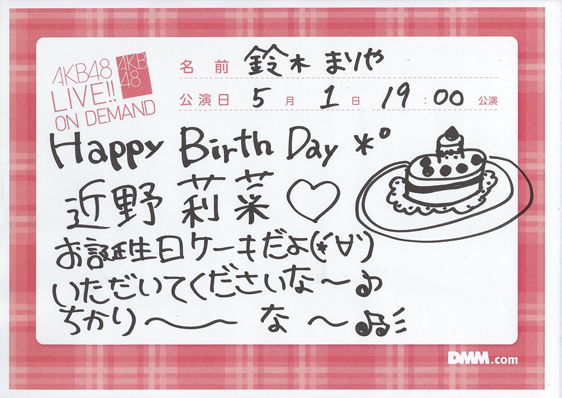 AKB48
LIVE!!
ON DEMAND
AKB
48
名前 鈴木まりや
公演日 5月1日 19:00 公演
Happy Birth Day *°
近野 莉菜♡
お誕生日ケーキだよ(*´∀`)
いただいてくださいな〜♪
ちかり〜〜 な〜♫
DMM.com